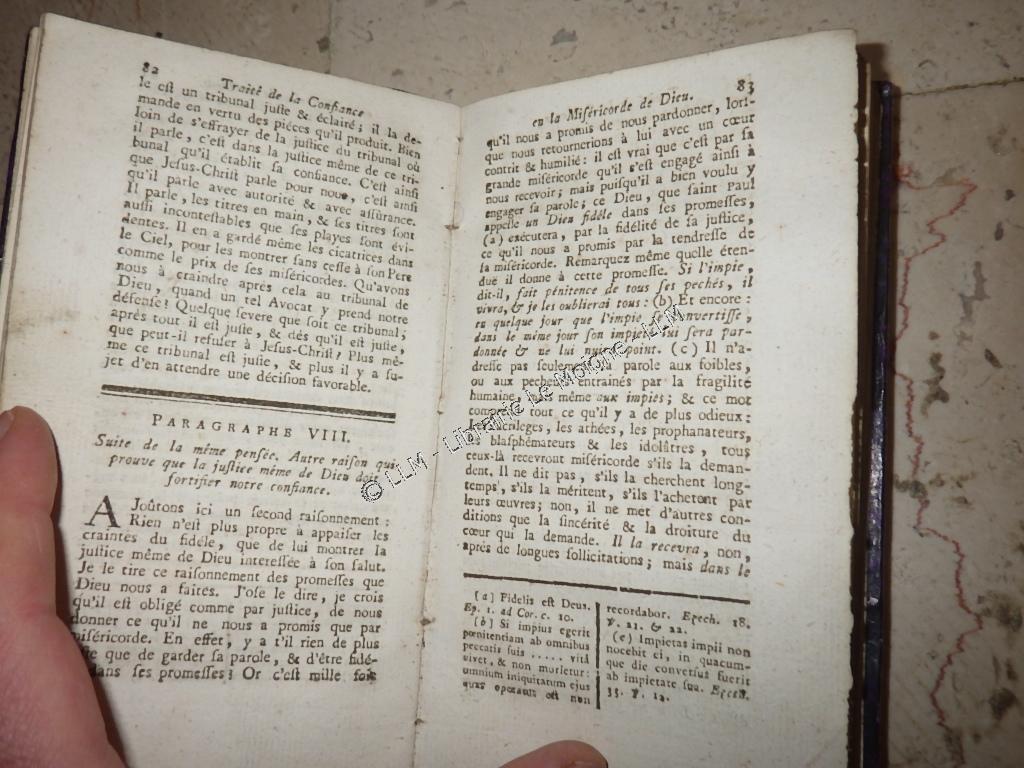 82
Traité de la Confiance
le est un tribunal juste & éclairé; il la de-
mande en vertu des piéces qu'il produit. Bien
loin de s'effrayer de la justice du tribunal où
il parle, c'est dans la justice même de ce tri-
bunal qu'il établit sa confiance. C'est ainsi
que Jesus-Christ parle pour nous, c'est ainsi
qu'il parle avec autorité & avec assûrance.
Il parle, les titres en main, & ses titres sont
aussi incontestables que ses playes sont évi-
dentes. Il en a gardé même les cicatrices dans
le Ciel, pour les montrer sans cesse à son Pere
comme le prix de ses miséricordes. Qu'avons
nous à craindre après cela au tribunal de
Dieu, quand un tel Avocat y prend notre
défense? Quelque severe que soit ce tribunal;
après tout il est juste, & dès qu'il est juste,
que peut-il refuser à Jesus-Christ? Plus mê-
me ce tribunal est juste, & plus il y a su-
jet d'en attendre une décision favorable.
PARAGRAPHE VIII.
Suite de la même pensée. Autre raison qui
prouve que la justice même de Dieu doit
fortifier notre confiance.
AJoûtons ici un second raisonnement:
Rien n'est plus propre à appaiser les
craintes du fidéle, que de lui montrer la
justice même de Dieu interessée à son salut.
Je le tire ce raisonnement des promesses que
Dieu nous a faites. J'ose le dire, je crois
qu'il est obligé comme par justice, de nous
donner ce qu'il ne nous a promis que par
miséricorde. En effet, y a t'il rien de plus
que de garder sa parole, & d'être fidé-
dans ses promesses? Or c'est mille fois
83
en la Miséricorde de Dieu.
qu'il nous a promis de nous pardonner, lors-
que nous retournerions à lui avec un cœur
contrit & humilié: il est vrai que c'est par sa
grande miséricorde qu'il s'est engagé ainsi à
nous recevoir; mais puisqu'il a bien voulu y
engager sa parole; ce Dieu, que saint Paul
appelle un Dieu fidéle dans ses promesses,
(a) exécutera, par la fidélité de sa justice,
ce qu'il nous a promis par la tendresse de
sa miséricorde. Remarquez même quelle éten-
due il donne à cette promesse. Si l'impie,
dit-il, fait pénitence de tous ses pechés, il
vivra, & je les oublierai tous: (b) Et encore:
en quelque jour que l'impie se convertisse,
dans le même jour son impieté lui sera par-
donnée & ne lui nuira point. (c) Il n'a-
dresse pas seulement sa parole aux foibles,
ou aux pecheurs entrainés par la fragilité
humaine, mais même aux impies; & ce mot
comprend tout ce qu'il y a de plus odieux:
les sacrileges, les athées, les prophanateurs,
les blasphémateurs & les idolâtres, tous
ceux-là recevront miséricorde s'ils la deman-
dent. Il ne dit pas, s'ils la cherchent long-
temps, s'ils la méritent, s'ils l'achetent par
leurs œuvres; non, il ne met d'autres con-
ditions que la sincérité & la droiture du
cœur qui la demande. Il la recevra, non,
après de longues sollicitations; mais dans le
(a) Fidelis est Deus.
Ep. 1. ad Cor. c. 10.
(b) Si impius egerit
pœnitentiam ab omnibus
peccatis suis ..... vitâ
vivet, & non morietur:
omnium iniquitatum ejus
quas operatus est non
recordabor. Ezech. 18.
℣. 21. & 22.
(c) Impietas impii non
nocebit ei, in quacum-
que die conversus fuerit
ab impietate sua. Ezech.
33. ℣. 12.
© LLM - Librairie Le Moigne - LLM